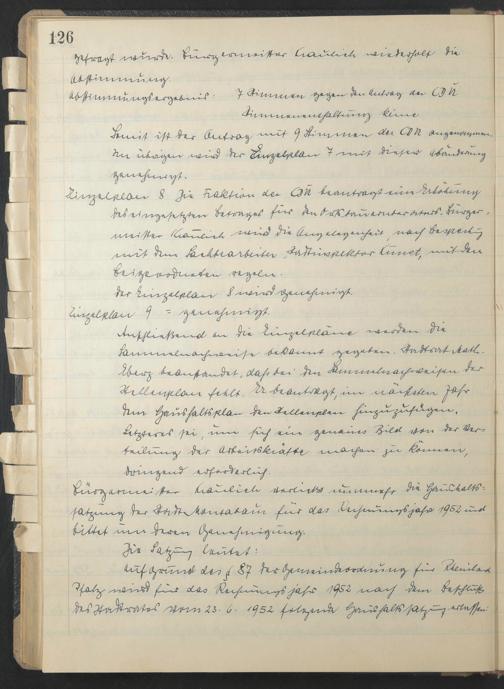 126
gefragt wurde. Bürgermeister Haulich wiederholt die
Abstimmung.
Abstimmungsergebnis: 7 Stimmen gegen den Antrag der CDU
Stimmenenthaltung keine
Somit ist der Antrag mit 9 Stimmen der CDU angenommen
Im übrigen wird der Einzelplan 7 mit dieser Abänderung
genehmigt.
Einzelplan 8 Die Fraktion der CDU beantragt eine Erhöhung
des eingesetzten Betrages für den Bürger-
meister Haulich wird die Angelegenheit, nach Besprechung
mit dem Sachbearbeiter, Stadtinspektor mit den
Beigeordneten regeln.
Der Einzelplan 8 wird genehmigt
Einzelplan 9 = genehmigt.
Anschließend an die Einzelpläne werden die
Sammelnachweise bekannt gegeben. Stadtrat Math.
Eberz beanstandet, daß bei den Sammelnachweisen der
Stellenplan fehlt. Er beantragt, im nächsten Jahr
dem Haushaltsplan den Stellenplan hinzuzufügen.
Letzteres sei, um sich ein genaues Bild von der Ver-
teilung der Arbeitskräfte machen zu können,
dringend erforderlich.
Bürgermeister Haulich verliest nunmehr die Haushalts-
satzung der Stadt Montabaur für das Rechnungsjahr 1952 und
bittet um deren Genehmigung.
Die Satzung lautet:
Auf Grund des § 87 der Gemeindeordnung für Rheinland
Pfalz wird für das Rechnungsjahr 1952 nach dem Beschluß
des Stadtrates vom 23. 6. 1952 folgende Haushaltssatzung erlassen: